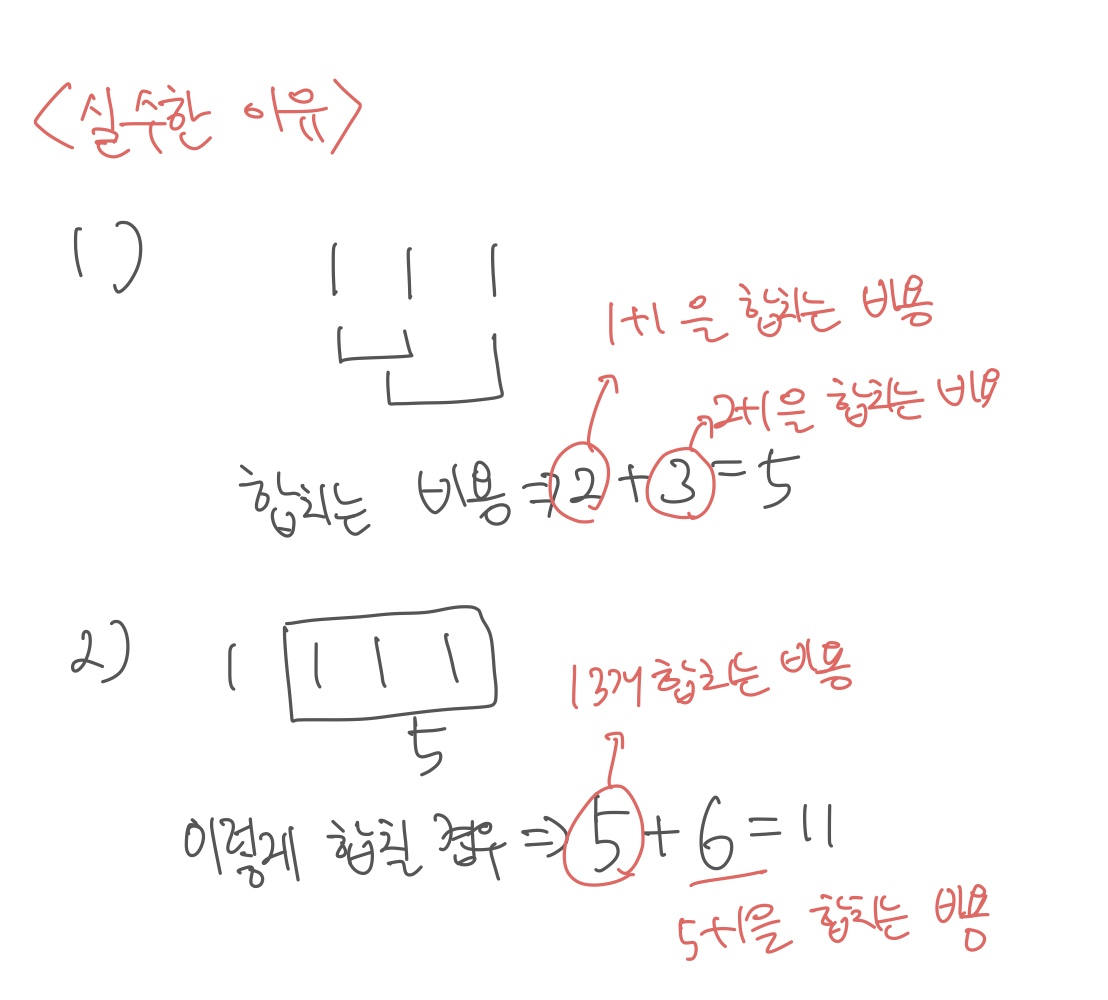 <실수한 이유>
1)
1 1 1
1+1을 합치는 비용
2+1을 합치는 비용
합치는 비용 => 2 + 3 = 5
2)
1 1 1 1
5
1 3개 합치는 비용
이렇게 합칠 경우 => 5 + 6 = 11
5+1을 합치는 비용